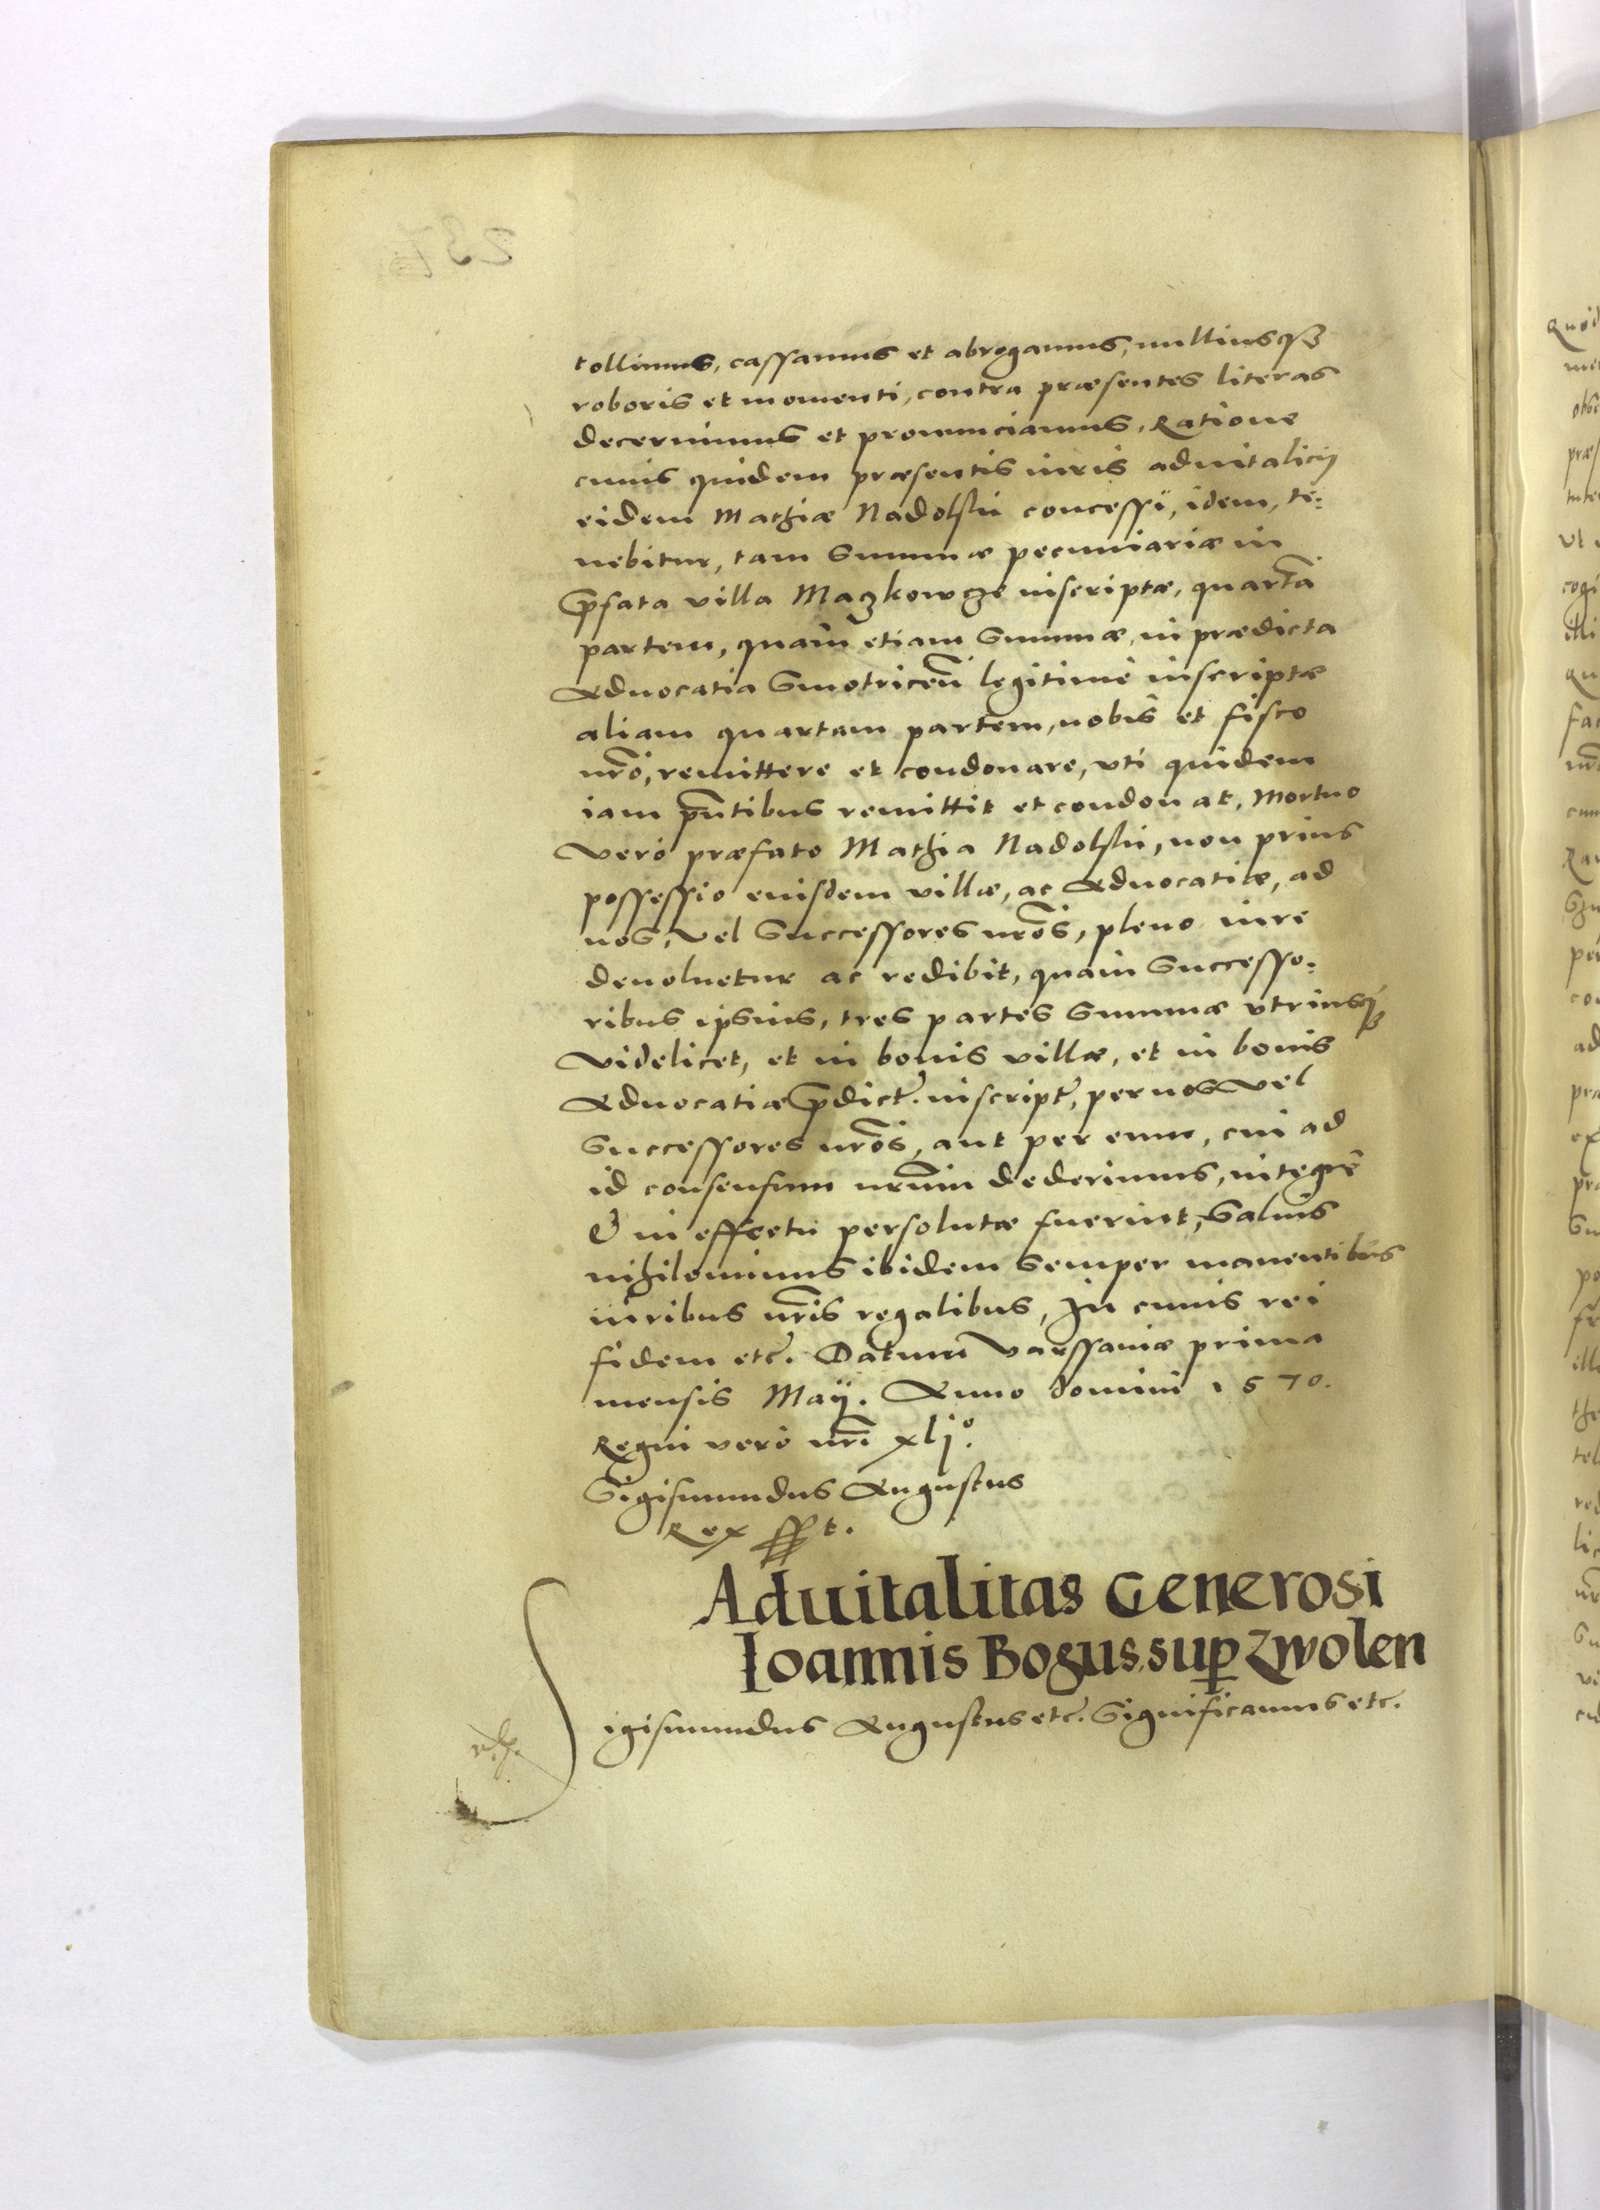 tollimus, cassamus et abrogamus, nulliusqꝫ
roboris et momenti, contra præsentes literas
decernimus et pronunciamus. Ratione
cuius quidem præsentis iuris aduitalicij
eidem Mathiæ Nadolski concessi, idem, te-
nebitur, tam Summæ pecuniariæ in
p̃fata villa Maczkowcze inscriptæ, quartã
partem, quam etiam Summæ, in prædicta
Aduocatia Smotriceñ legitimè inscriptæ
aliam quartam partem, nobis et fisco
nr̃o, remittere et condonare, vti quidem
iam pñtibus remittit et condonat, Mortuo
vero præfato Mathia Nadolski, non prius
possessio eiusdem villæ, ac Aduocatiæ, ad
nos, vel Successores nr̃os, pleno iure
deuoluetur ac redibit, quam Successo-
ribus ipsius, tres partes Summæ vtriusqꝫ
videlicet, et in bonis villæ, et in bonis
Aduocatiæ p̃dict. inscript, per nos vel
Successores nr̃os, aut per eum, cui ad
id consensum nr̃um dederimus, integrè
& in effectu persolutæ fuerint, Saluis
nihilominus ibidem semper manentibus
iuribus nr̃is regalibus, In cuius rei
fidem etc. Datum Varssauiæ prima
mensis Maij. Anno domini 1570.
Regni verò nr̃i xljº.
Sigismundus Augustus
Rex sst.
Aduitalitas Generosi
Ioannis Bogus. suꝑ Zwolen
Sigismundus Augustus etc. Significamus etc.